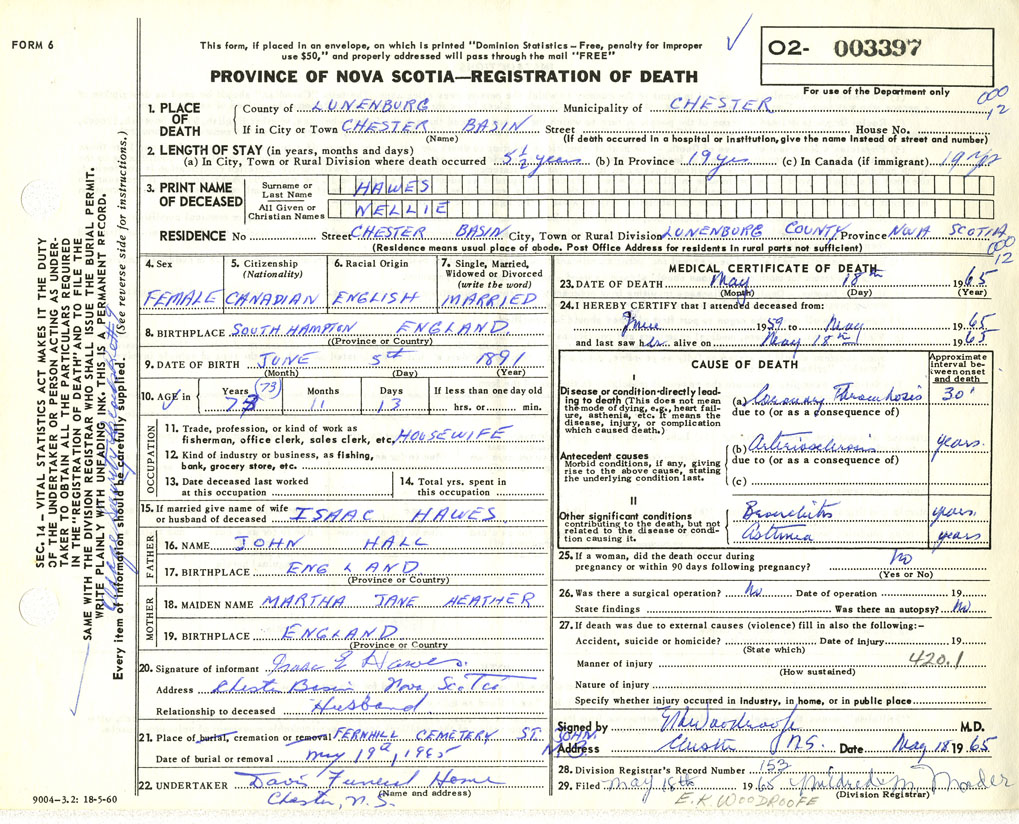 FORM 6
This form, if placed in an envelope, on which is printed "Dominion Statistics – Free, penalty for improper
use $50," and properly addressed will pass through the mail "FREE"
PROVINCE OF NOVA SCOTIA—REGISTRATION OF DEATH
O2- 003397
For use of the Department only
000
12
1. PLACE OF DEATH
County of LUNENBURG Municipality of CHESTER
If in City or Town CHESTER BASIN Street House No.
(Name) (If death occurred in a hospital or institution, give the name instead of street and number)
2. LENGTH OF STAY (in years, months and days)
(a) In City, Town or Rural Division where death occurred 5½ years (b) In Province 19 yrs (c) In Canada (if immigrant) 19 yrs
3. PRINT NAME OF DECEASED
Surname or Last Name HAWES
All Given or Christian Names NELLIE
RESIDENCE No Street CHESTER BASIN City, Town or Rural Division LUNENBURG COUNTY Province NWA SCOTIA
(Residence means usual place of abode. Post Office Address for residents in rural parts not sufficient)
000
12
4. Sex FEMALE
5. Citizenship (Nationality) CANADIAN
6. Racial Origin ENGLISH
7. Single, Married, Widowed or Divorced (write the word) MARRIED
8. BIRTHPLACE SOUTH HAMPTON ENGLAND
(Province or Country)
9. DATE OF BIRTH JUNE 5th 1891
(Month) (Day) (Year)
10. AGE in Years 73 (73) Months 11 Days 13 If less than one day old hrs. or min.
OCCUPATION
11. Trade, profession, or kind of work as
fisherman, office clerk, sales clerk, etc. HOUSEWIFE
12. Kind of industry or business, as fishing,
bank, grocery store, etc.
13. Date deceased last worked
at this occupation
14. Total yrs. spent in
this occupation
15. If married give name of wife
or husband of deceased ISAAC HAWES
FATHER
16. NAME JOHN HALL
17. BIRTHPLACE ENGLAND
(Province or Country)
MOTHER
18. MAIDEN NAME MARTHA JANE HEATHER
19. BIRTHPLACE ENGLAND
(Province or Country)
20. Signature of informant Isaac E Hawes.
Address Chester Basin Nova Scotia
Relationship to deceased Husband
21. Place of burial, cremation or removal FERNHILL CEMETERY ST. JOHN. N.B
Date of burial or removal May 19th, 1965
22. UNDERTAKER Davis Funeral Home
(Name and address)
Chester, N.S.
9004—3.2: 18-5-60
MEDICAL CERTIFICATE OF DEATH
23. DATE OF DEATH May 18th 1965
(Month) (Day) (Year)
24. I HEREBY CERTIFY that I attended deceased from:
June 1959 to May 1965
and last saw her alive on May 18th 1965
CAUSE OF DEATH
Approximate interval between onset and death
I
Disease or condition directly leading to death (This does not mean the mode of dying, e.g., heart failure, asthenia, etc. It means the disease, injury, or complication which caused death.)
(a) Coronary Thrombosis 30'
due to (or as a consequence of)
Antecedent causes
Morbid conditions, if any, giving rise to the above cause, stating the underlying condition last.
(b) Arteriosclerosis years.
due to (or as a consequence of)
(c)
II
Other significant conditions
contributing to the death, but not related to the disease or condition causing it.
Bronchitis years.
Asthma years
25. If a woman, did the death occur during
pregnancy or within 90 days following pregnancy? No
(Yes or No)
26. Was there a surgical operation? No Date of operation 19
State findings Was there an autopsy? No
27. If death was due to external causes (violence) fill in also the following:–
Accident, suicide or homicide? Date of injury 19
(State which)
420.1
Manner of injury
(How sustained)
Nature of injury
Specify whether injury occurred in industry, in home, or in public place
Signed by Woodroofe M.D.
Address Chester N.S. Date May 18 1965
28. Division Registrar's Record Number 153
29. Filed May 18th 1965 Mildred M Nader
(Division Registrar)
E.K WOODROOFE
SEC. 14—VITAL STATISTICS ACT MAKES IT THE DUTY
OF THE UNDERTAKER OR PERSON ACTING AS UNDER-
TAKER TO OBTAIN ALL THE PARTICULARS REQUIRED
IN THE "REGISTRATION OF DEATH" AND TO FILE THE
SAME WITH THE DIVISION REGISTRAR WHO SHALL ISSUE THE BURIAL PERMIT.
WRITE PLAINLY WITH UNFADING INK. THIS IS A PERMANENT RECORD.
Every item of information should be carefully supplied. (See reverse side for instructions.)